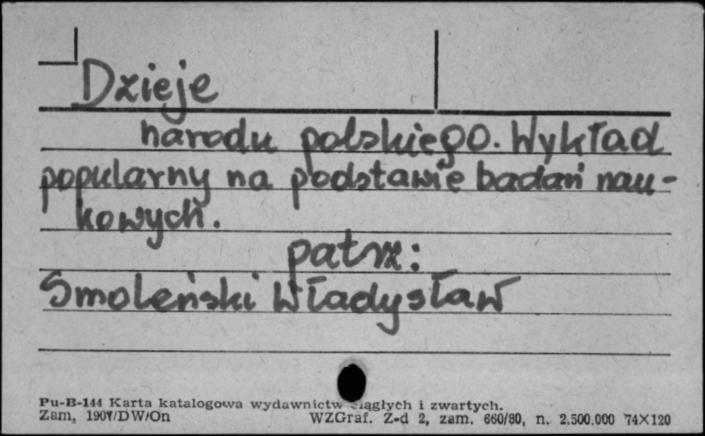 Dzieje
narodu polskiego. Wykład
popularny na podstawie badań nau-
kowych.
patrz:
Smoleński Władysław
Pu-B-144 Karta katalogowa wydawnictw ciągłych i zwartych.
Zam, 1907/DW/On WZGraf. Z-d 2, zam. 660/80, n. 2.500.000 74X120